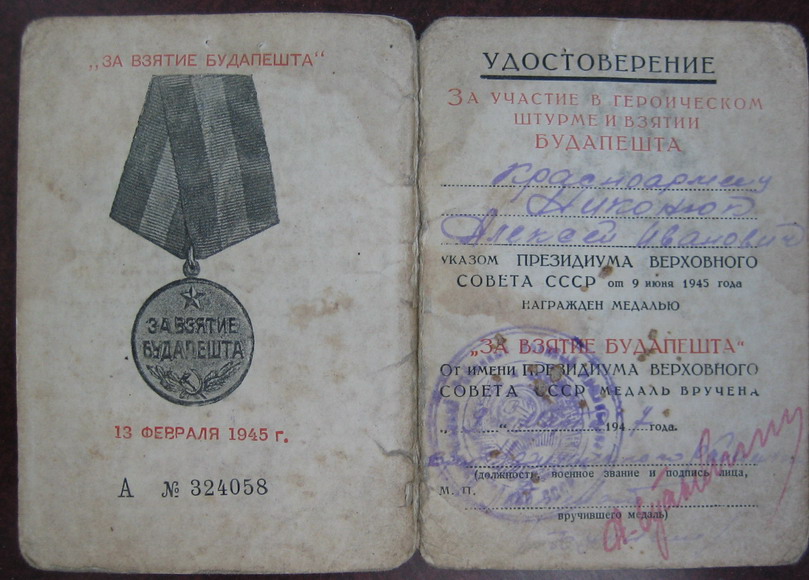 „ЗА ВЗЯТИЕ БУДАПЕШТА“
ЗА ВЗЯТИЕ
БУДАПЕШТА
13 ФЕВРАЛЯ 1945 г.
А № 324058
УДОСТОВЕРЕНИЕ
ЗА УЧАСТИЕ В ГЕРОИЧЕСКОМ
ШТУРМЕ И ВЗЯТИИ
БУДАПЕШТА
Красноармеец
Алексей Иванович
УКАЗОМ ПРЕЗИДИУМА ВЕРХОВНОГО
СОВЕТА СССР от 9 июня 1945 года
НАГРАЖДЕН МЕДАЛЬЮ
„ЗА ВЗЯТИЕ БУДАПЕШТА“
От имени ПРЕЗИДИУМА ВЕРХОВНОГО
СОВЕТА СССР МЕДАЛЬ ВРУЧЕНА
194 года.
(должность, военное звание и подпись лица,
М. П.
вручившего медаль)